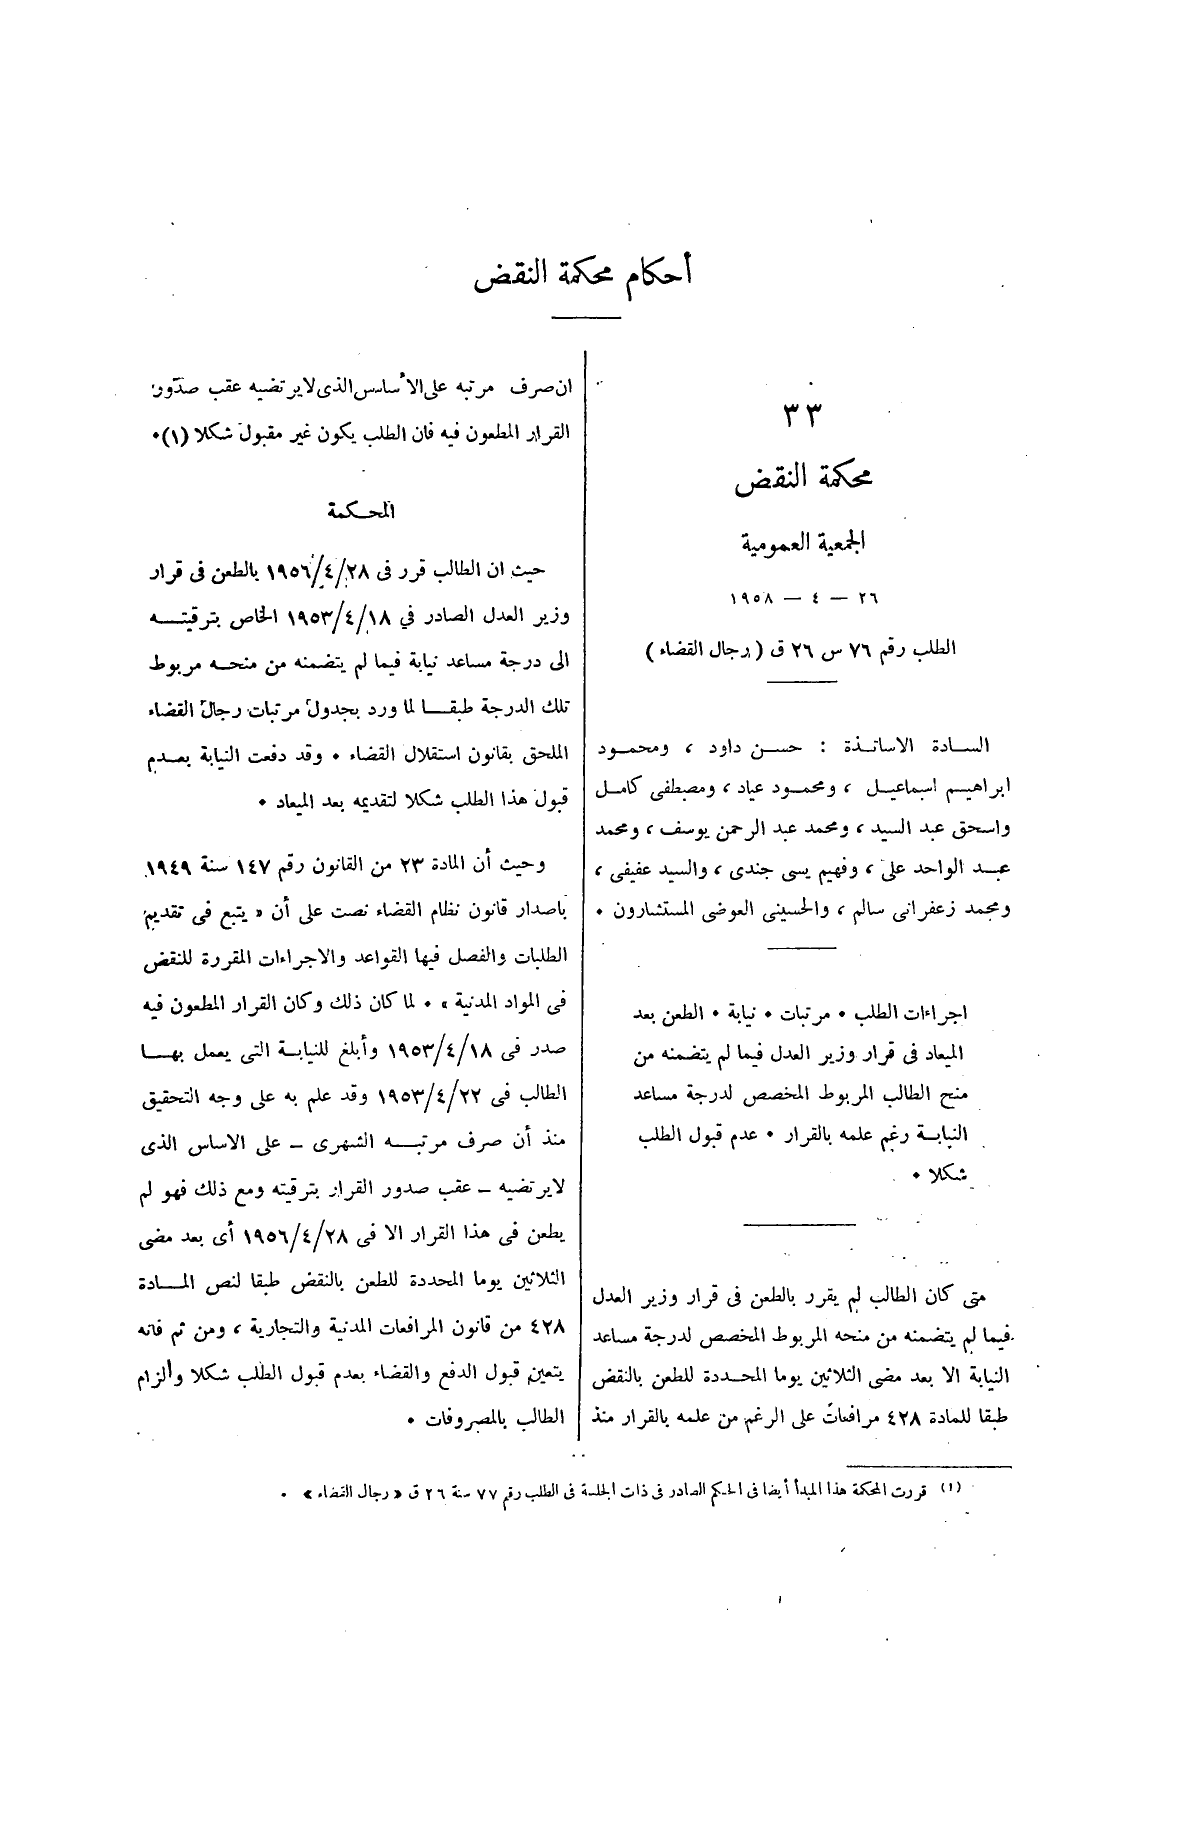 أحكام محكمة النقض
٣٣
محكمة النقض
الجمعية العمومية
٢٦ — ٤ — ١٩٥٨
الطلب رقم ٧٦ س ٢٦ ق ( رجال القضاء )
السادة الاساتذة : حسن داود ، ومحمود
ابراهيم اسماعيل ، ومحمود عياد ، ومصطفى كامل
واسحق عبد السيد ، ومحمد عبد الرحمن يوسف ، ومحمد
عبد الواحد على ، وفهيم يسى جندى ، والسيد عفيفى ،
ومحمد زعفرانى سالم ، والحسينى العوضى المستشارون .
اجراءات الطلب . مرتبات . نيابة . الطعن بعد
الميعاد فى قرار وزير العدل فيما لم يتضمنه من
منح الطالب المربوط المخصص لدرجة مساعد
النيابة رغم علمه بالقرار . عدم قبول الطلب
شكلا .
متى كان الطالب لم يقرر بالطعن فى قرار وزير العدل
فيما لم يتضمنه من منحه المربوط المخصص لدرجة مساعد
النيابة الا بعد مضى الثلاثين يوما المحددة للطعن بالنقض
طبقا للمادة ٤٢٨ مرافعات على الرغم من علمه بالقرار منذ
ان صرف مرتبه على الأساس الذى لا يرتضيه عقب صدور
القرار المطعون فيه فان الطلب يكون غير مقبول شكلا (١).
المحكمة
حيث ان الطالب قرر فى ١٩٥٦/٤/٢٨ بالطعن فى قرار
وزير العدل الصادر في ١٩٥٣/٤/١٨ الخاص بترقيته
الى درجة مساعد نيابة فيما لم يتضمنه من منحه مربوط
تلك الدرجة طبقا لما ورد بجدول مرتبات رجال القضاء
الملحق بقانون استقلال القضاء . وقد دفعت النيابة بعدم
قبول هذا الطلب شكلا لتقديمه بعد الميعاد .
وحيث أن المادة ٢٣ من القانون رقم ١٤٧ سنة ١٩٤٩
باصدار قانون نظام القضاء نصت على أن « يتبع فى تقديم
الطلبات والفصل فيها القواعد والاجراءات المقررة للنقض
فى المواد المدنية » . لما كان ذلك وكان القرار المطعون فيه
صدر فى ١٩٥٣/٤/١٨ وأبلغ للنيابة التى يعمل بها
الطالب فى ١٩٥٣/٤/٢٢ وقد علم به على وجه التحقيق
منذ أن صرف مرتبه الشهرى — على الاساس الذى
لايرتضيه — عقب صدور القرار بترقيته ومع ذلك فهو لم
يطعن فى هذا القرار الا فى ١٩٥٦/٤/٢٨ أى بعد مضى
الثلاثين يوما المحددة للطعن بالنقض طبقا لنص المادة
٤٢٨ من قانون المرافعات المدنية والتجارية ، ومن ثم فانه
يتعين قبول الدفع والقضاء بعدم قبول الطلب شكلا والزام
الطالب بالمصروفات .
(١) قررت المحكمة هذا المبدأ أيضا فى الحكم الصادر فى ذات الجلسة فى الطلب رقم ٧٧ سنة ٢٦ ق « رجال القضاء » .